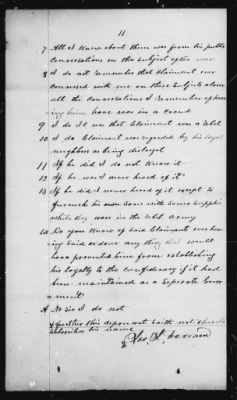 11
7 All I knew about them was from his public
conversations on the subject after war
8 I do not remember that Claimant ever
conversed with me on these subjects alone
all the Conversations I remember of hear
ing him have was in a crowd
9 I do It was that Claimant was a Rebl
10 I do Claimant was regarded by his loyal
neighbors as being disloyal
11 If he did I do not Know it
12 If he was I never heard of it
13 If he did I never heard of it except to
furnish his own sons with some supplies
while they were in the Rebl army
14 Do you Know of said Claimants ever hav
ing Said or done any thing that would
have prevented him from establishing
his loyalty to the confederacy if it had
been maintained as a Seperate Gover
ment
A No Sir I do not
& further this deponent saith not & hereto
subscribes his name